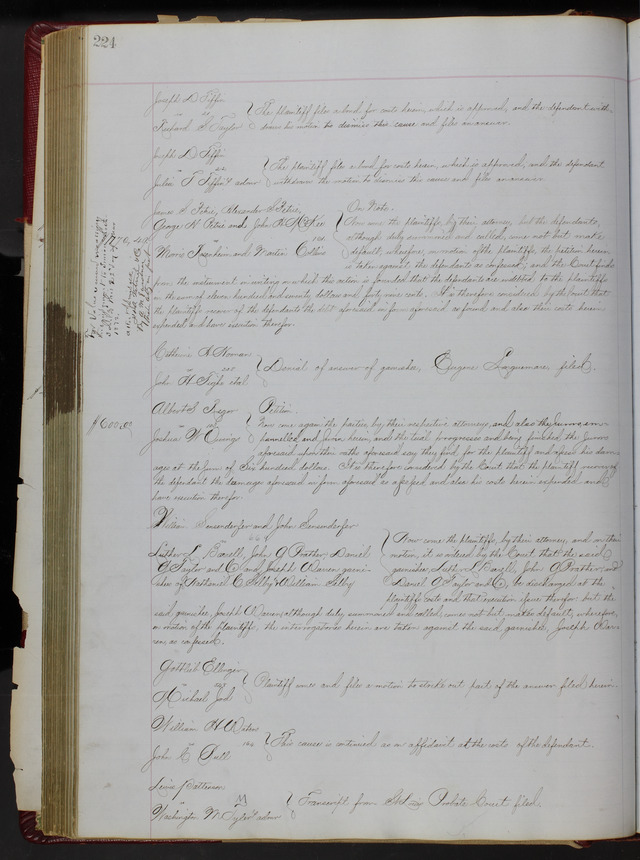 224
Joseph L. Tiffin
vs
Richard S. Taylor
The plaintiff files a bond for costs herein, which is approved, and the defendant with-
draws his motion to dismiss this cause and files an answer.
Joseph L. Tiffin
vs
Julia T. Tiffin's admr
The plaintiff files a bond for costs herein, which is approved, and the defendant
withdraws the motion to dismiss this cause and files an answer.
James S. Petrie, Alexander S. Petrie,
George H. Petrie and John R. McKee
vs
Morris and Martin Collins
On Note.
Now come the plaintiffs, by their attorney, but the defendants,
although duly summoned and called, come not but make
default, wherefore, on motion of the plaintiffs, the petition herein
is taken against the defendants as confessed; and the Court finds
from the instrument in writing on which this action is founded that the defendants are indebted to the plaintiffs
in the sum of eleven hundred and seventy dollars and forty nine cents. It is therefore considered by the Court that
the plaintiffs recover of the defendants the debt aforesaid in form aforesaid as found and also their costs herein
expended, and have execution therefor.
$1170.49
Catharine A. Homan
vs
John H. et al
Denial of answer of garnishee, Eugene filed.
$600.00
Albert S.
vs
Joshua W. Owings
Petition.
Now come again the parties, by their respective attorneys, and also the jurors em-
pannelled and sworn herein, and the trial progresses and being finished, the jurors
aforesaid upon their oaths aforesaid say they find for the plaintiff and assess his dam-
ages at the sum of Six hundred dollars. It is therefore considered by the Court that the plaintiff recover of
the defendant the damages aforesaid in form aforesaid as assessed and also his costs herein expended and
have execution therefor.
William Sensenderfer and John Sensenderfer
vs
Luther L. John G. Prather, Daniel
G. Taylor and Co. and Joseph Warren garni-
shees of Nathaniel C. Selby & William Selby
Now come the plaintiffs, by their attorney, and on their
motion, it is ordered by the Court that the said
garnishees, Luther L. John G. Prather and
Daniel G. Taylor and Co. be discharged at the
plaintiffs' costs and that execution issue therefor: but the
said garnishee, Joseph Warren, although duly summoned and called, comes not but makes default, wherefore,
on motion of the plaintiffs, the interrogatories herein are taken against the said garnishee, Joseph War-
ren, as confessed.
Gottlieb
vs
Michael
Plaintiff comes and files a motion to strike out part of the answer filed herein.
William H. Waters
vs
John C. Dull
This cause is continued as on affidavit at the costs of the defendant.
Patterson
vs
Washington M. admr
Transcript from St. L. Co. Probate Court filed.